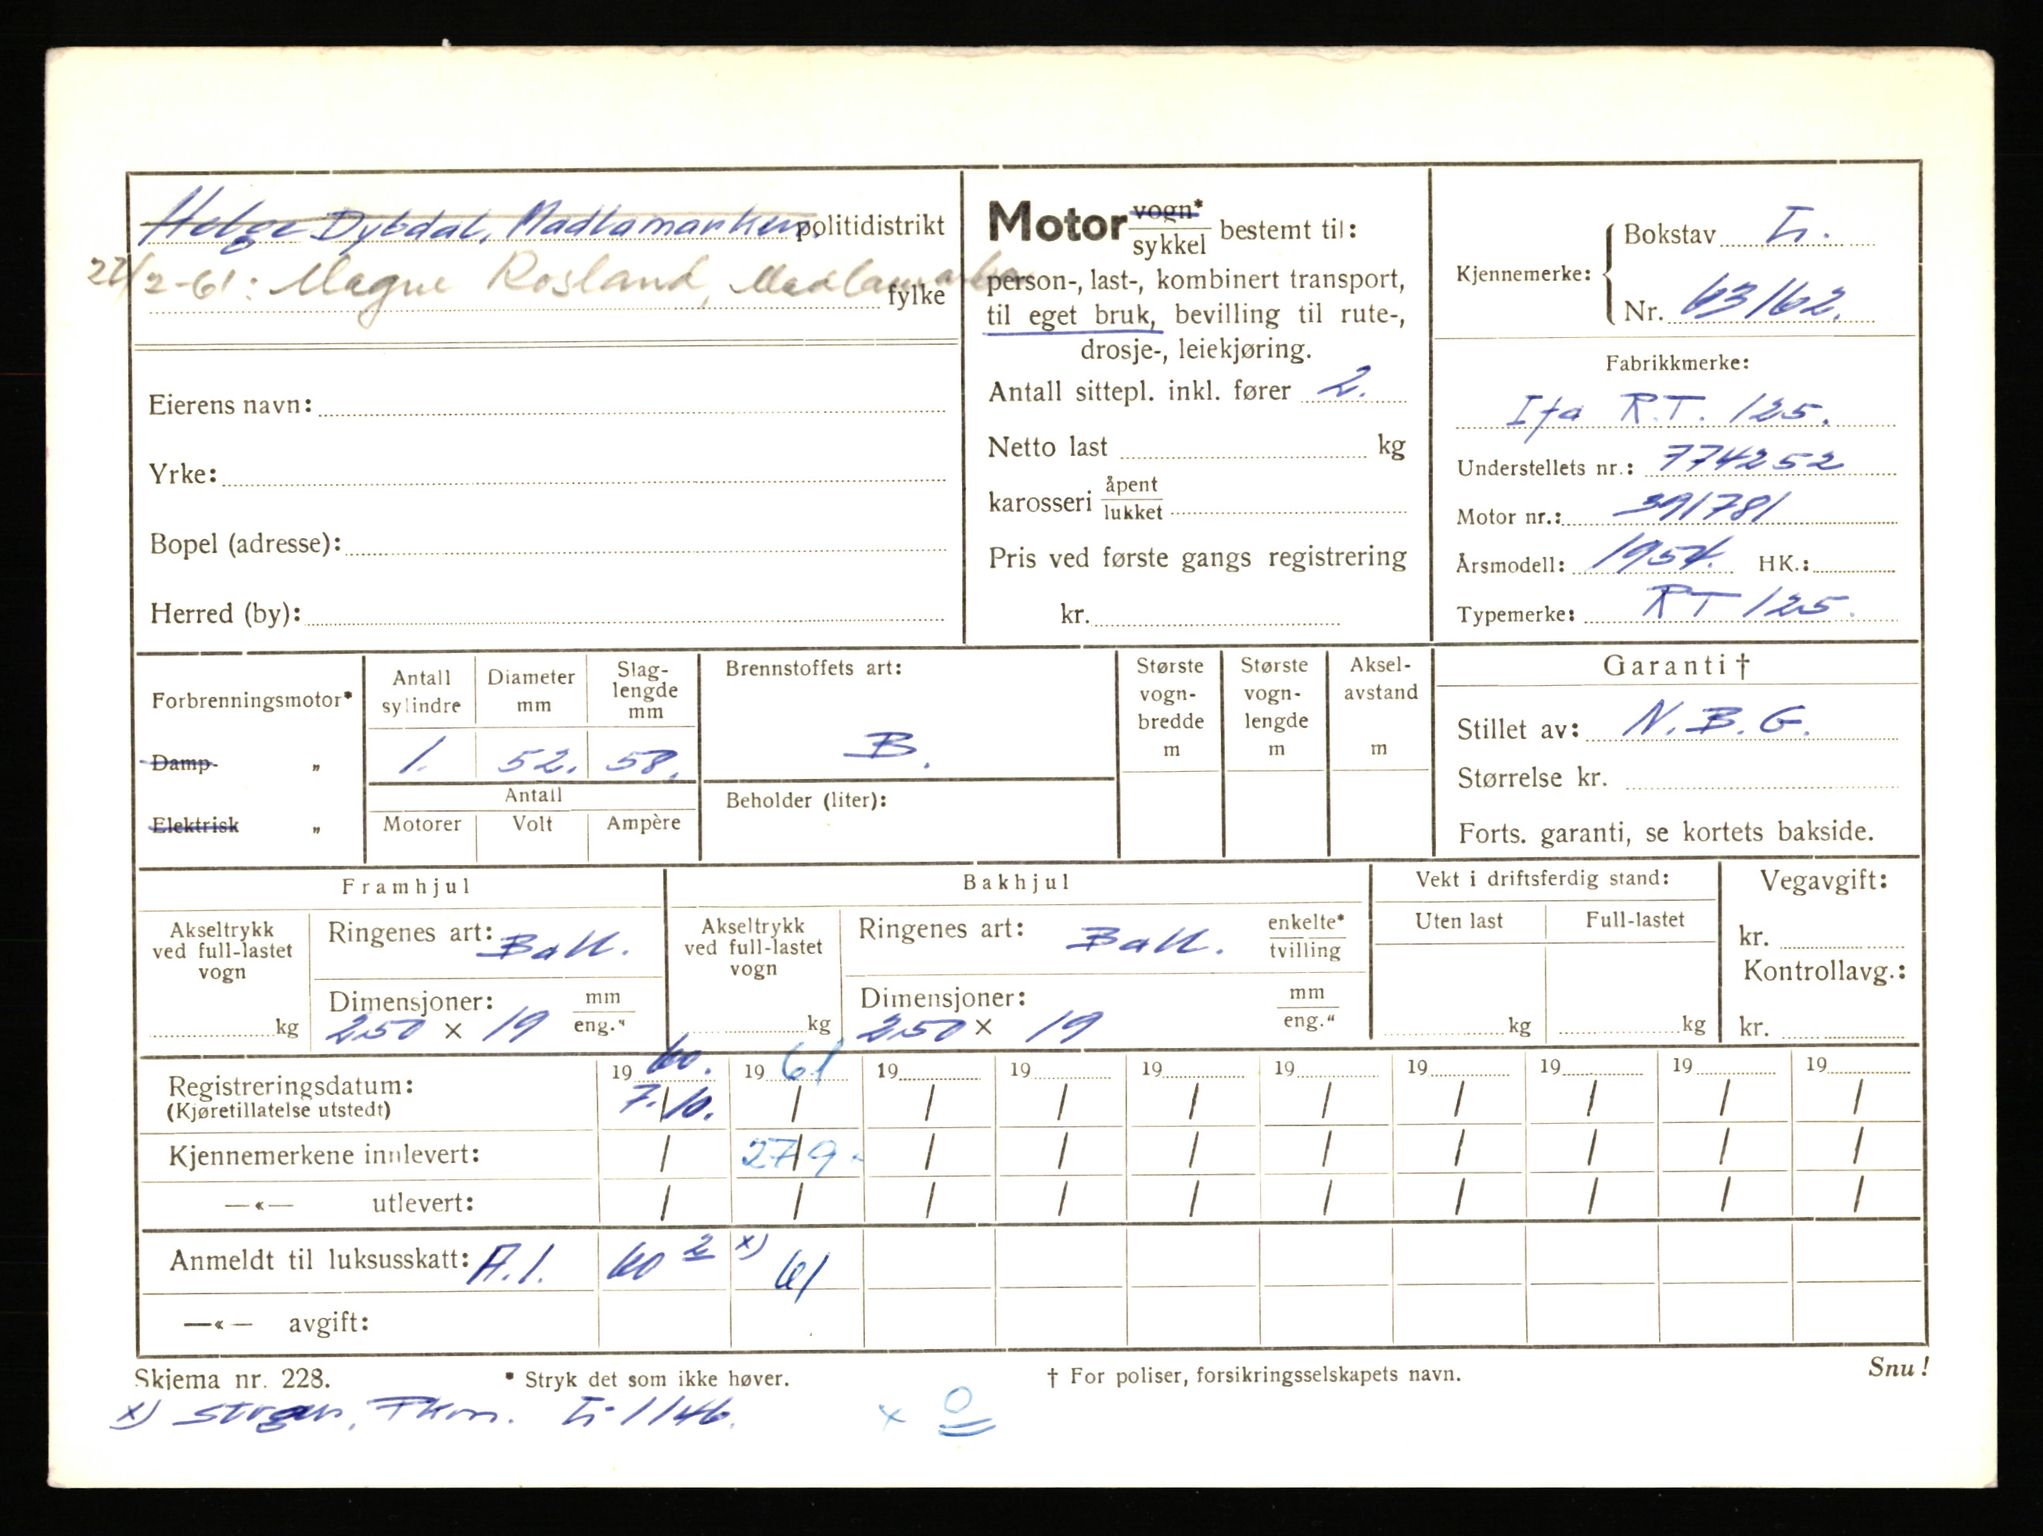 Helge Dybdal, Madlamarken. politidistrikt
22/2-61: Magne Rosland, Madlamarka fylke
Eierens navn:
Yrke:
Bopel (adresse):
Herred (by):
Motor vogn* / sykkel bestemt til:
person-, last-, kombinert transport,
til eget bruk, bevilling til rute-,
drosje-, leiekjøring.
Antall sittepl. inkl. fører 2.
Netto last kg
karosseri åpent / lukket
Pris ved første gangs registrering
kr.
Kjennemerke:
Bokstav L.
Nr. 63162.
Fabrikkmerke:
Ifa R.T. 125.
Understellets nr.: 774252
Motor nr.: 391781
Årsmodell: 1954. HK.:
Typemerke: RT 125.
Forbrenningsmotor*
Damp- „
Elektrisk „
Antall sylindre
1.
Diameter mm
52.
Slag-lengde mm
58.
Antall
Motorer Volt Ampère
Brennstoffets art:
B.
Beholder (liter):
Største vogn-bredde m
Største vogn-lengde m
Aksel-avstand m
Garanti †
Stillet av: N.B.G.
Størrelse kr.
Forts. garanti, se kortets bakside.
Framhjul
Akseltrykk ved full-lastet vogn
kg
Ringenes art: Ball.
Dimensjoner: mm / eng."
250 × 19
Bakhjul
Akseltrykk ved full-lastet vogn
kg
Ringenes art: Ball. enkelte* / tvilling
Dimensjoner: mm / eng."
250 × 19
Vekt i driftsferdig stand:
Uten last Full-lastet
kg kg
Vegavgift:
kr.
Kontrollavg.:
kr.
19 60. 19 61 19 19 19 19 19 19 19 19
Registreringsdatum: 7./10. / / / / / / / / /
(Kjøretillatelse utstedt)
Kjennemerkene innlevert: / 27/9- / / / / / / / /
—«— utlevert: / / / / / / / / / /
Anmeldt til luksusskatt: A.1. 60 2 x) 61
—«— avgift:
Skjema nr. 228.
* Stryk det som ikke høver.
† For poliser, forsikringsselskapets navn.
Snu!
1146.
x 0